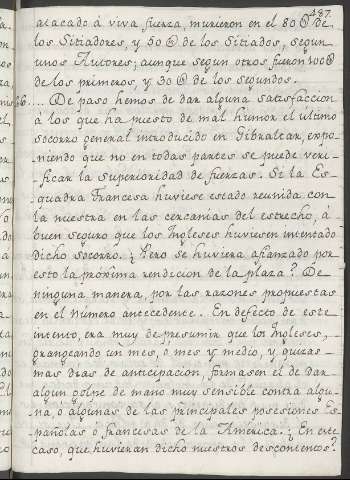 487.
atacado á viva fuerza, murieron en el 80@ de
los Sitiadores, y 50@ de los Sitiados, segun
unos Autores; aunque segun otros fueron 100@
de los primeros, y 30@ de los segundos.
.... De paso hemos de dar alguna satisfaccion
á los que ha puesto de mal humor el ultimo
socorro general introducido en Gibraltar, expo-
niendo que no en todas partes se puede veri-
ficar la superioridad de fuerzas. Si la Es-
quadra Francesa huviese estado reunida con
la nuestra en las cercanias del estrecho, á
buen seguro que los Ingleses huviesen intentado
dicho socorro. ¿Pero se huviera afianzado por
esto la próxima rendicion de la plaza? De
ninguna manera, por las razones propuestas
en el numero antecedente. En defecto de este
intento, era muy de presumir que los Ingleses,
grangeando un mes, o mes y medio, y quizas
mas dias de anticipacion, formasen el de dar
algun golpe de mano muy sensible contra algu-
na, o algunas de las principales posesiones Es-
pañolas ó francesas de la América. ¿En este
caso, que huvieran dicho nuestros descontentos?